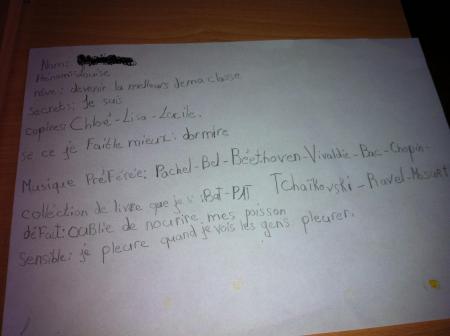 Nom:
Prénom: Louise
rêve: devenir la meilleurs dema classe
secrets: Je suis
copines: Chloé-Lisa-Lucile.
se ce je Faitle mieux: dormire
Musique PréFérée: Pachel-Bel-Béethoven-Vivaldie-Bac-Chopin-
Tchaïkovski-Ravel-Mozart
colléction de livre que je: Bat-PAT
déFait: oublie de nourire mes poisson
Sensible: je pleure quand je vois les gens pleurer.